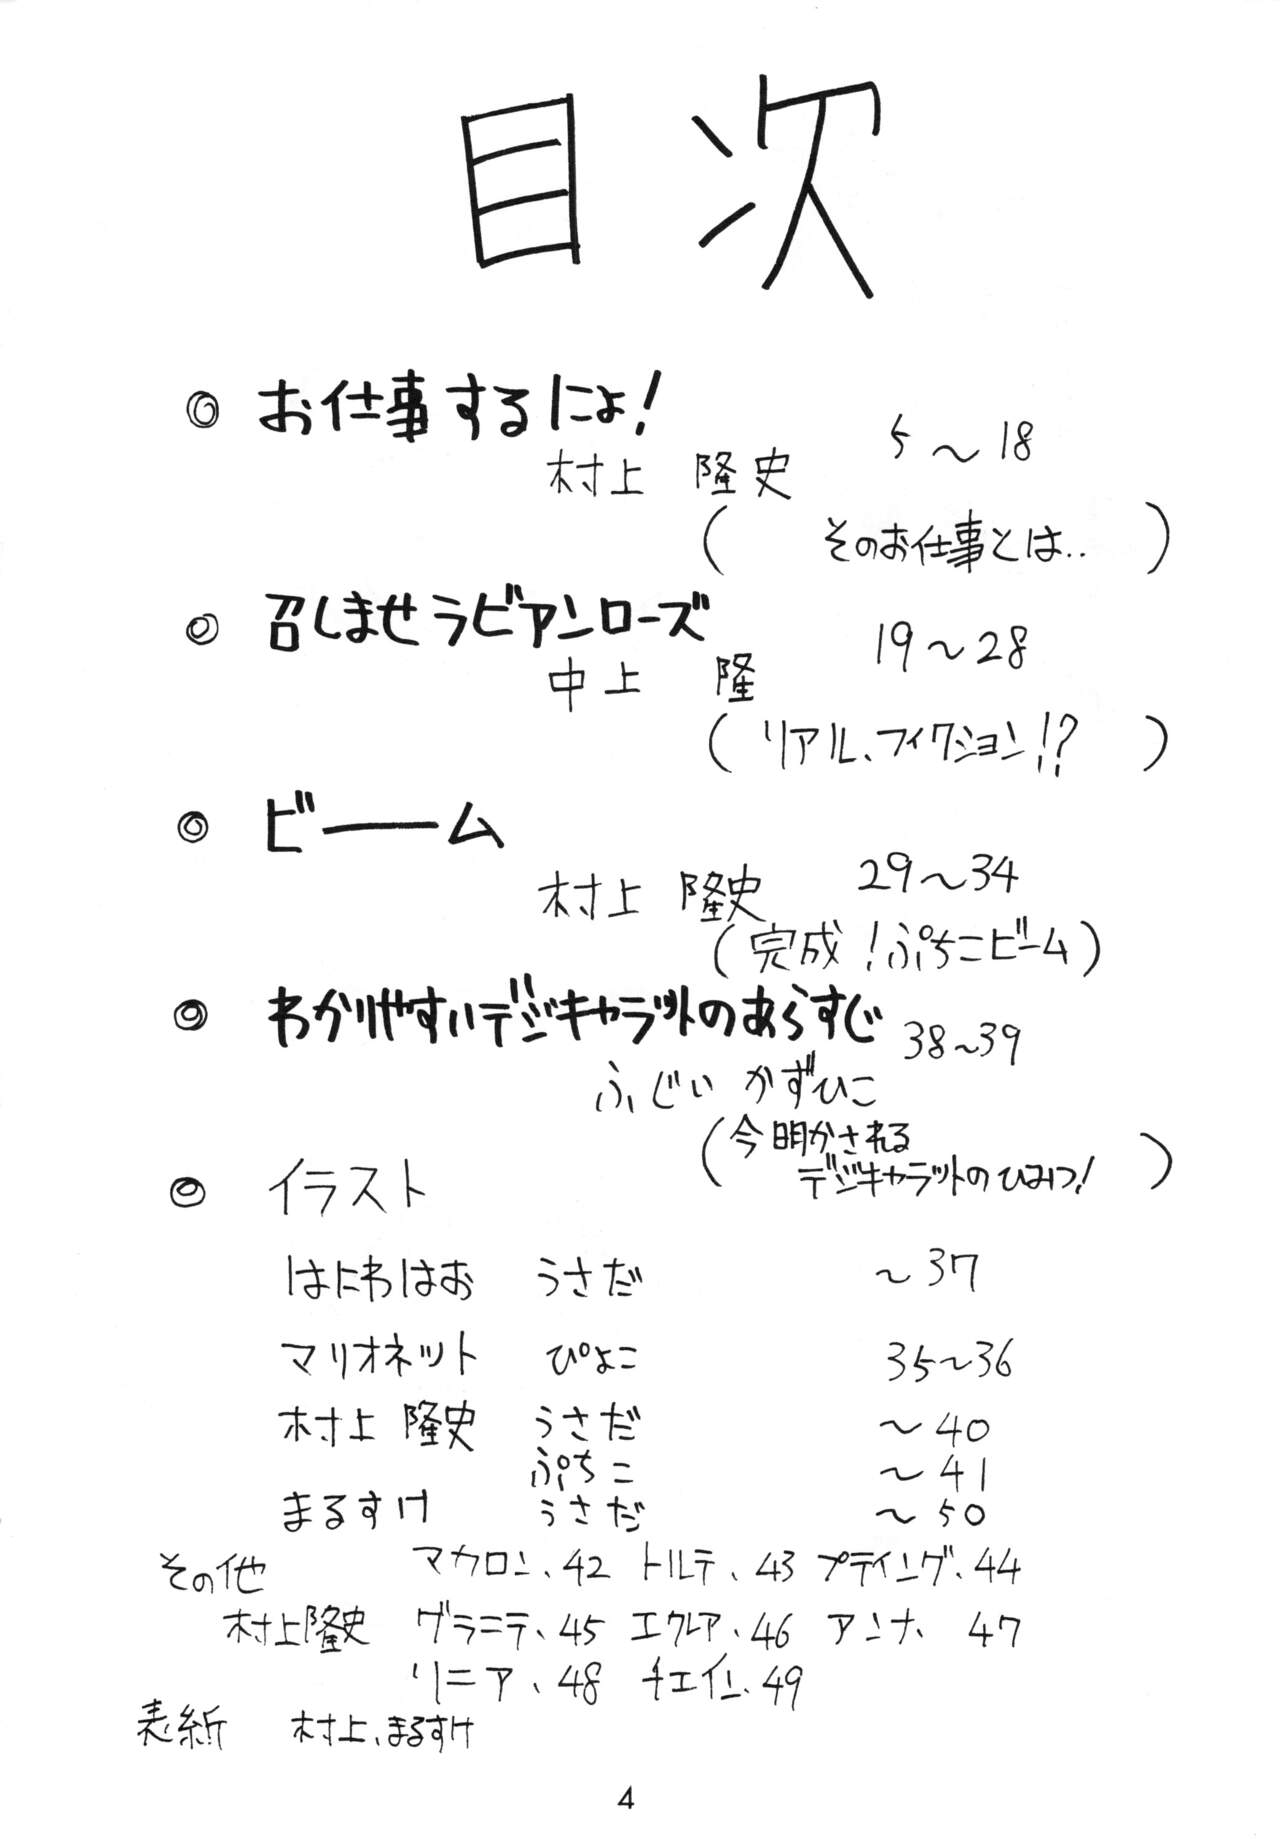 目次
◎ お仕事するにょ!
5～18
村上 隆史
(そのお仕事とは..)
◎ 召しませラビアンローズ
19～28
中上 隆
(リアル、フィクション!?)
◎ ビーーム
29～34
村上 隆史
(完成!ぷちこビーム)
◎ わかりやすいデジキャラットのあらすじ
38～39
ふじい かずひこ
(今明かされる
デジキャラットのひみつ!)
◎ イラスト
はにわはお うさだ ～37
マリオネット ぴょこ 35～36
村上 隆史 うさだ ～40
ぷちこ ～41
まるすけ うさだ ～50
その他 マカロン、42 トルテ、43 プティング、44
村上隆史 グラニテ、45 エクレア、46 アンナ、47
リニア、48 チェイン、49
表紙 村上、まるすけ
4